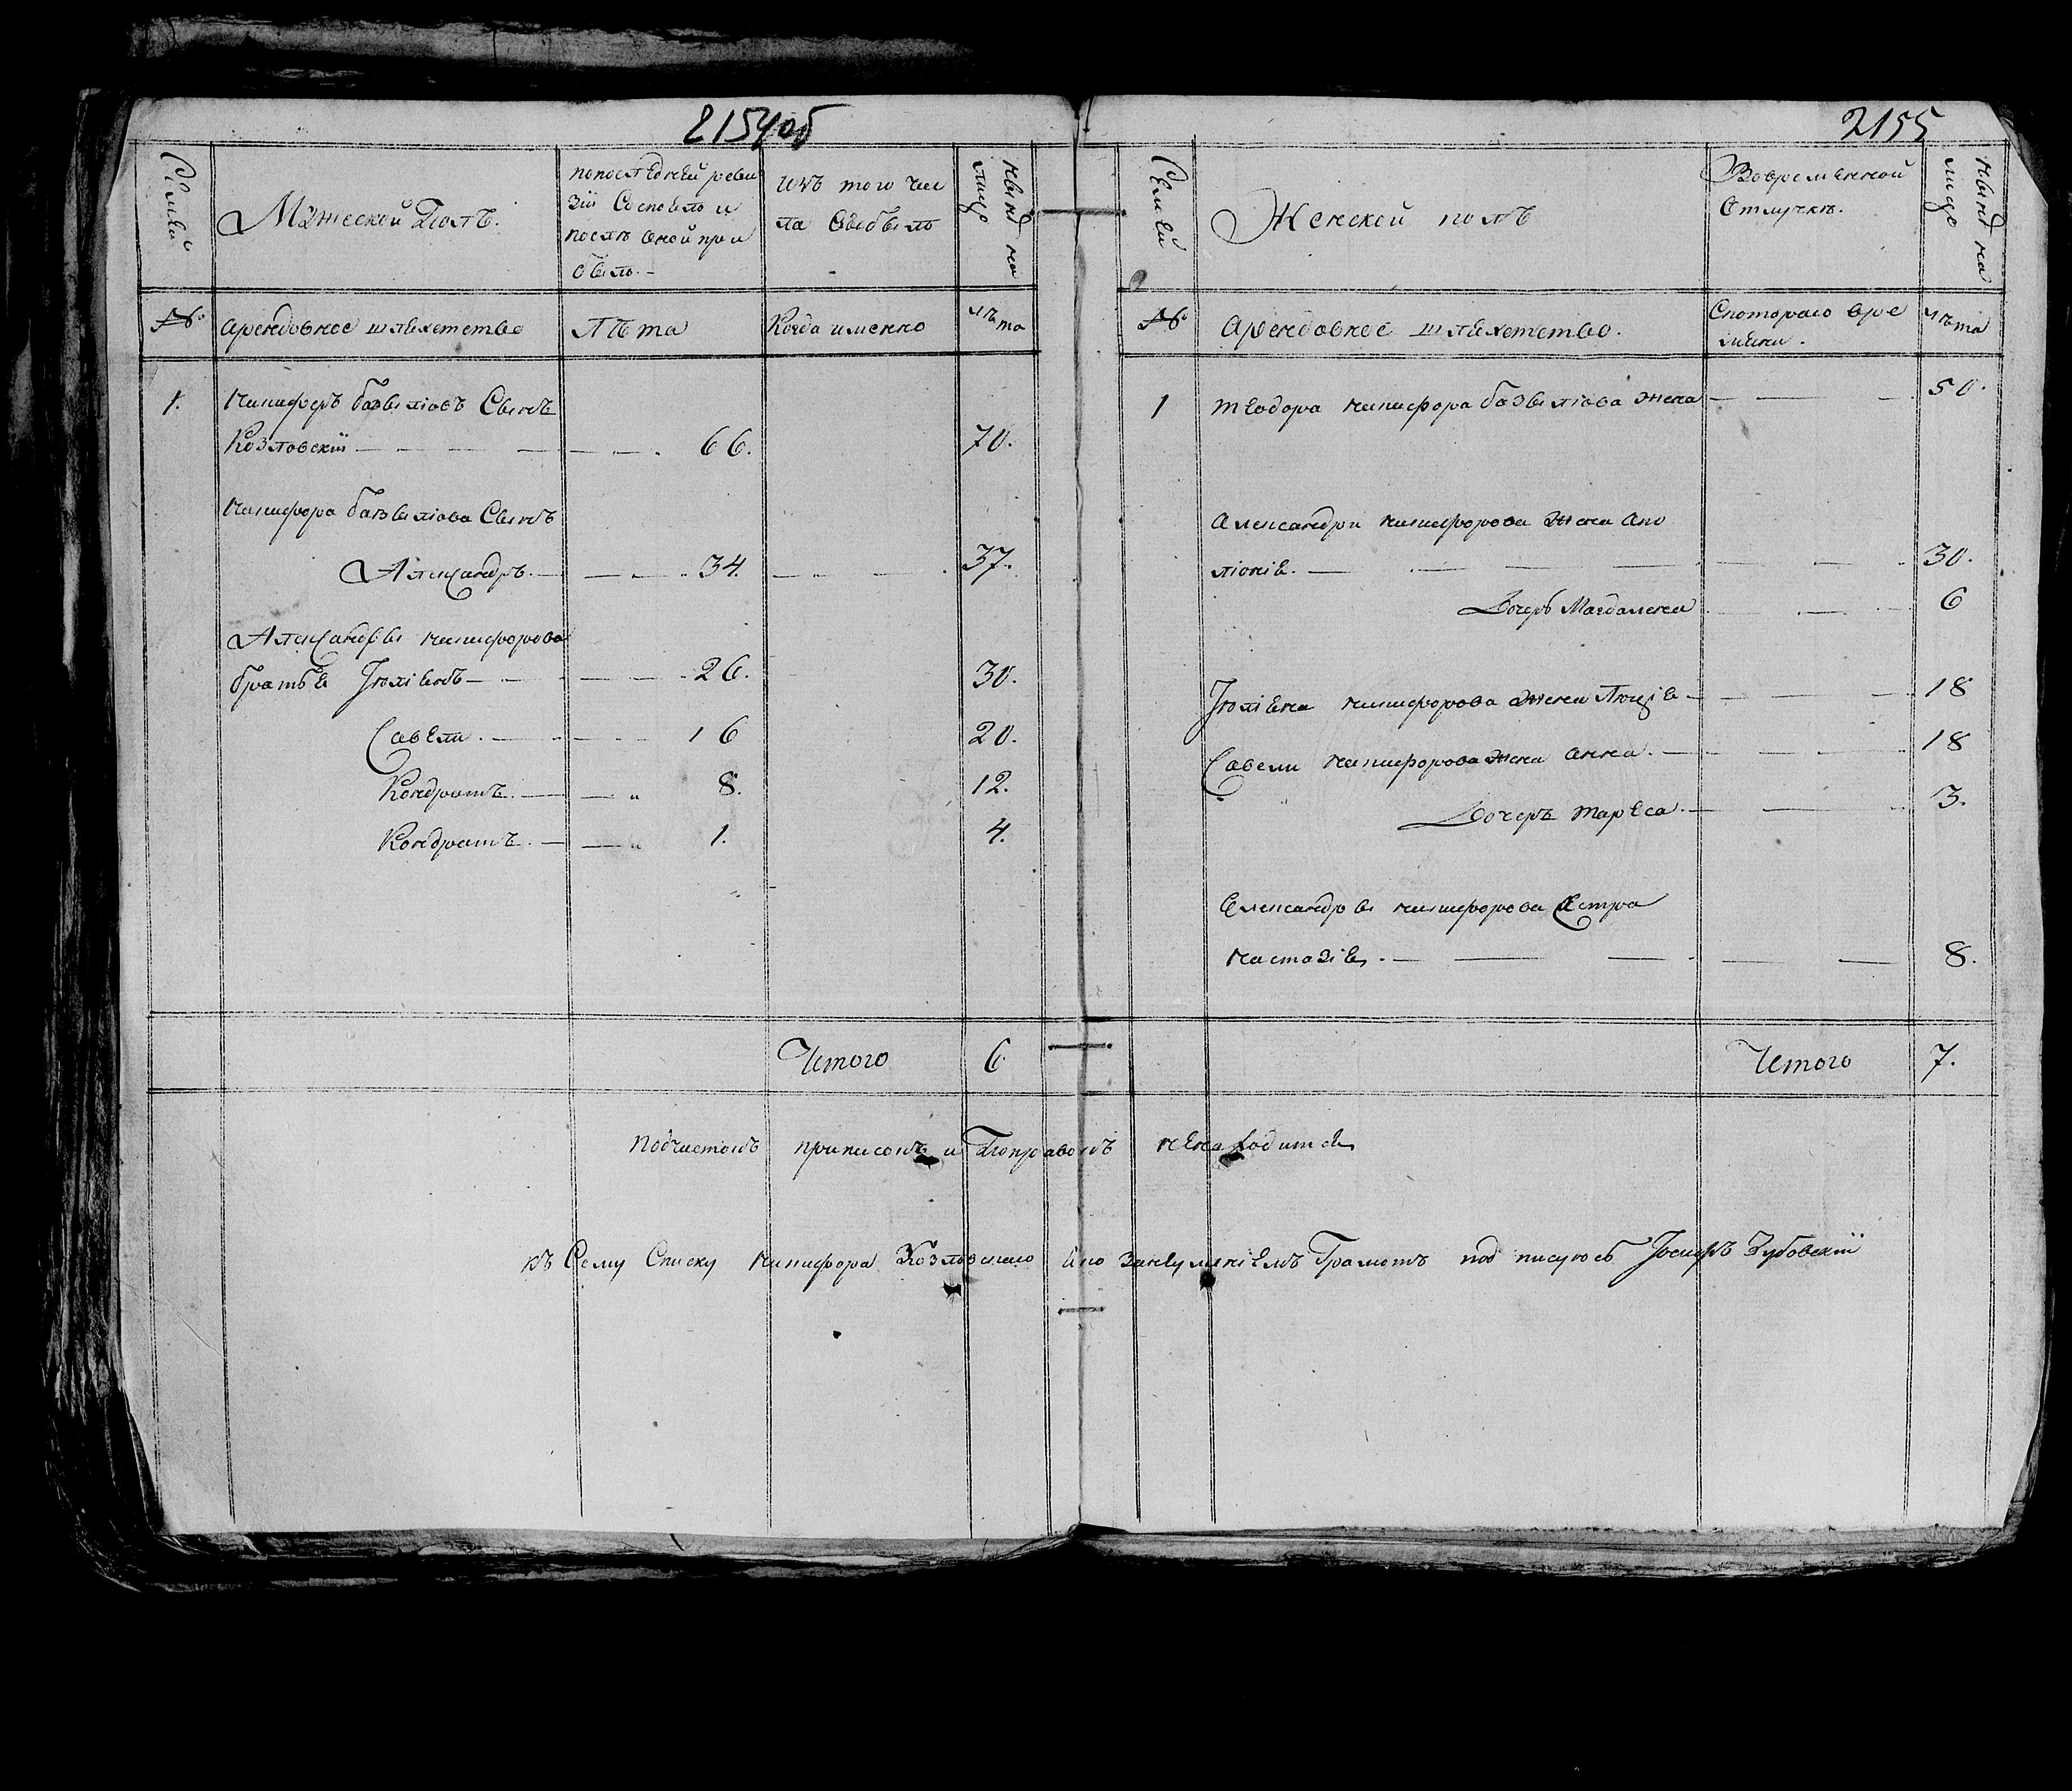 2154об
Семьи
Мужеской Полъ.
по последней реви
зіи Состояло и
послѣ оной при
было. -
изъ того чис
ла выбыло
ныне на
лице
№
Арендовное шляхетство
Лѣта
Когда именно
лѣта
1. Никифоръ базылiовъ Сынъ
Козловскiй 66. 70.
Никифора базылiова Сынъ
Александръ. 34. 37.
Александры никифорова
братья Iюлiянъ 26. 30.
Савели. 16 20.
Кондратъ. 8. 12.
Кондратъ. 1. 4.
Итого 6
2155
Семьи
Женской полъ
Вовременной
Отлучкѣ.
ныне на
лице
№
Арендовное шляхетство.
Скотораго вре
мени.
лѣта
1 Теодора никифора базылiова жена 50.
Александри никифорова жена апо
лiонiя. 30.
Дочеръ Магдалена 6
Iюлiяна никифорова жена Люцiя 18
Савели никифорова жена анна. 18
Дочеръ Тареса. 3.
Александры никифорова Сестра
Настазiя. 8.
Итого 7.
Подчистокъ приписокъ и Поправокъ ненаходится
къ Сему Списку никифора Козловскаго а по Заневменiемъ Грамотъ под писуюсь Iосифъ Зубовскiй